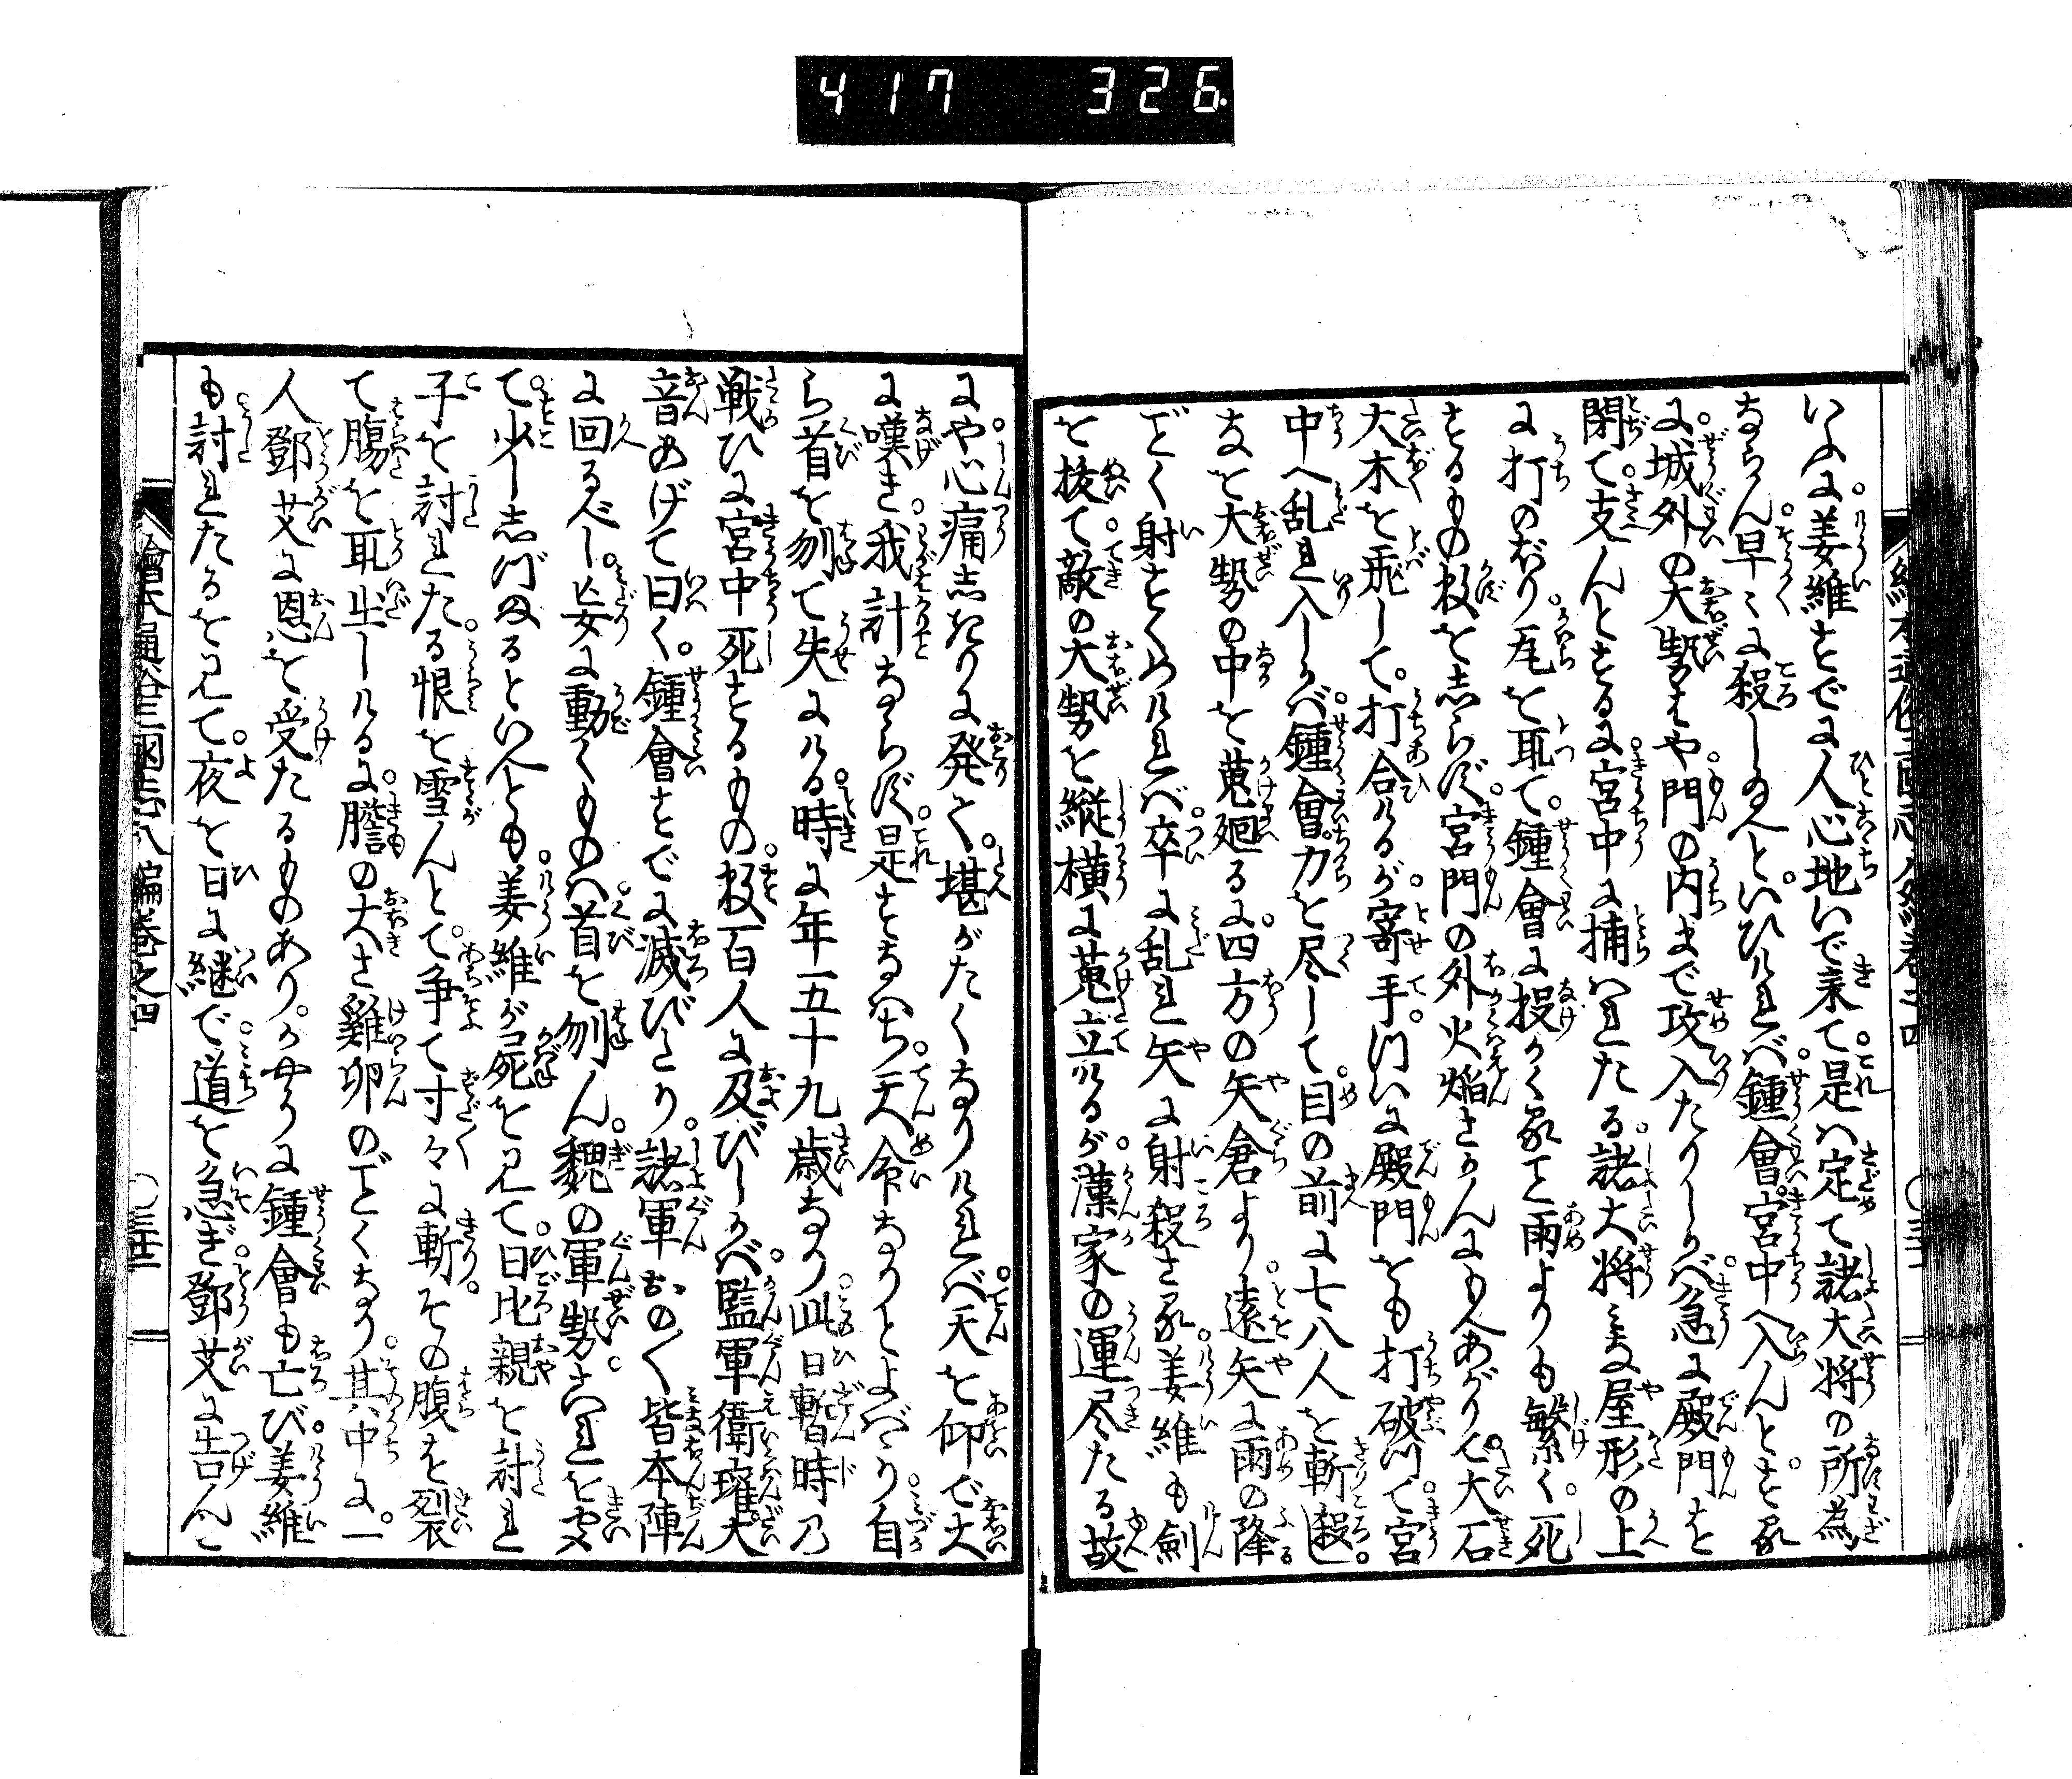 417 326
いふに姜維すでに人心地いで来て是は定て諸大将の所為
ならん早々に殺し給へといひければ鍾會宮中へ入んとする
に城外の大勢はや門の内まで攻入たりしかば急に殿門を
閉て支んとするに宮中に捕はれたる諸大将ミな屋形の上
に打のぼり瓦を取て鍾會に投かくること雨よりも繁く死
するもの数を志らず宮門の外火焔さかんにもえあがりて大石
大木を飛して打合けるが寄手ついに殿門をも打破つて宮
中へ乱れ入しかば鍾會力を尽して目の前に七八人を斬殺し
なを大勢の中を蒐廻るに四方の矢倉より遠矢に雨の降
ごとく射すくめければ卒に乱れ矢に射殺さる姜維も剣
を抜て敵の大勢を縦横に蒐立けるが漢家の運尽たる故
にや心痛志きりに発て堪がたくなりければ天を仰で大
に嘆き我計ならず是すなはち天命なりとよばゝり自
ら首を刎て失にける時に年五十九歳なり此日暫時乃
戦ひに宮中死するもの数百人に及びしかば監軍衛瓘大
音あげて曰く鍾會すでに滅びたり諸軍おの〱皆本陣
に回るべし妄に動くものハ首を刎ん魏の軍勢これを聞
て少し志づまるといへども姜維が死を見て日比親を討れ
子を討れたる恨を雪んとて争て寸々に斬りその腹を裂
て膓を取出しけるに膽の大さ雞卵のごとくなり其中に一
人鄧艾に恩を受たるものありかやうに鍾會も亡び姜維
も討れたるを見て夜を日に継で道を急ぎ鄧艾に告んと
繪本通俗三國志八編巻之四